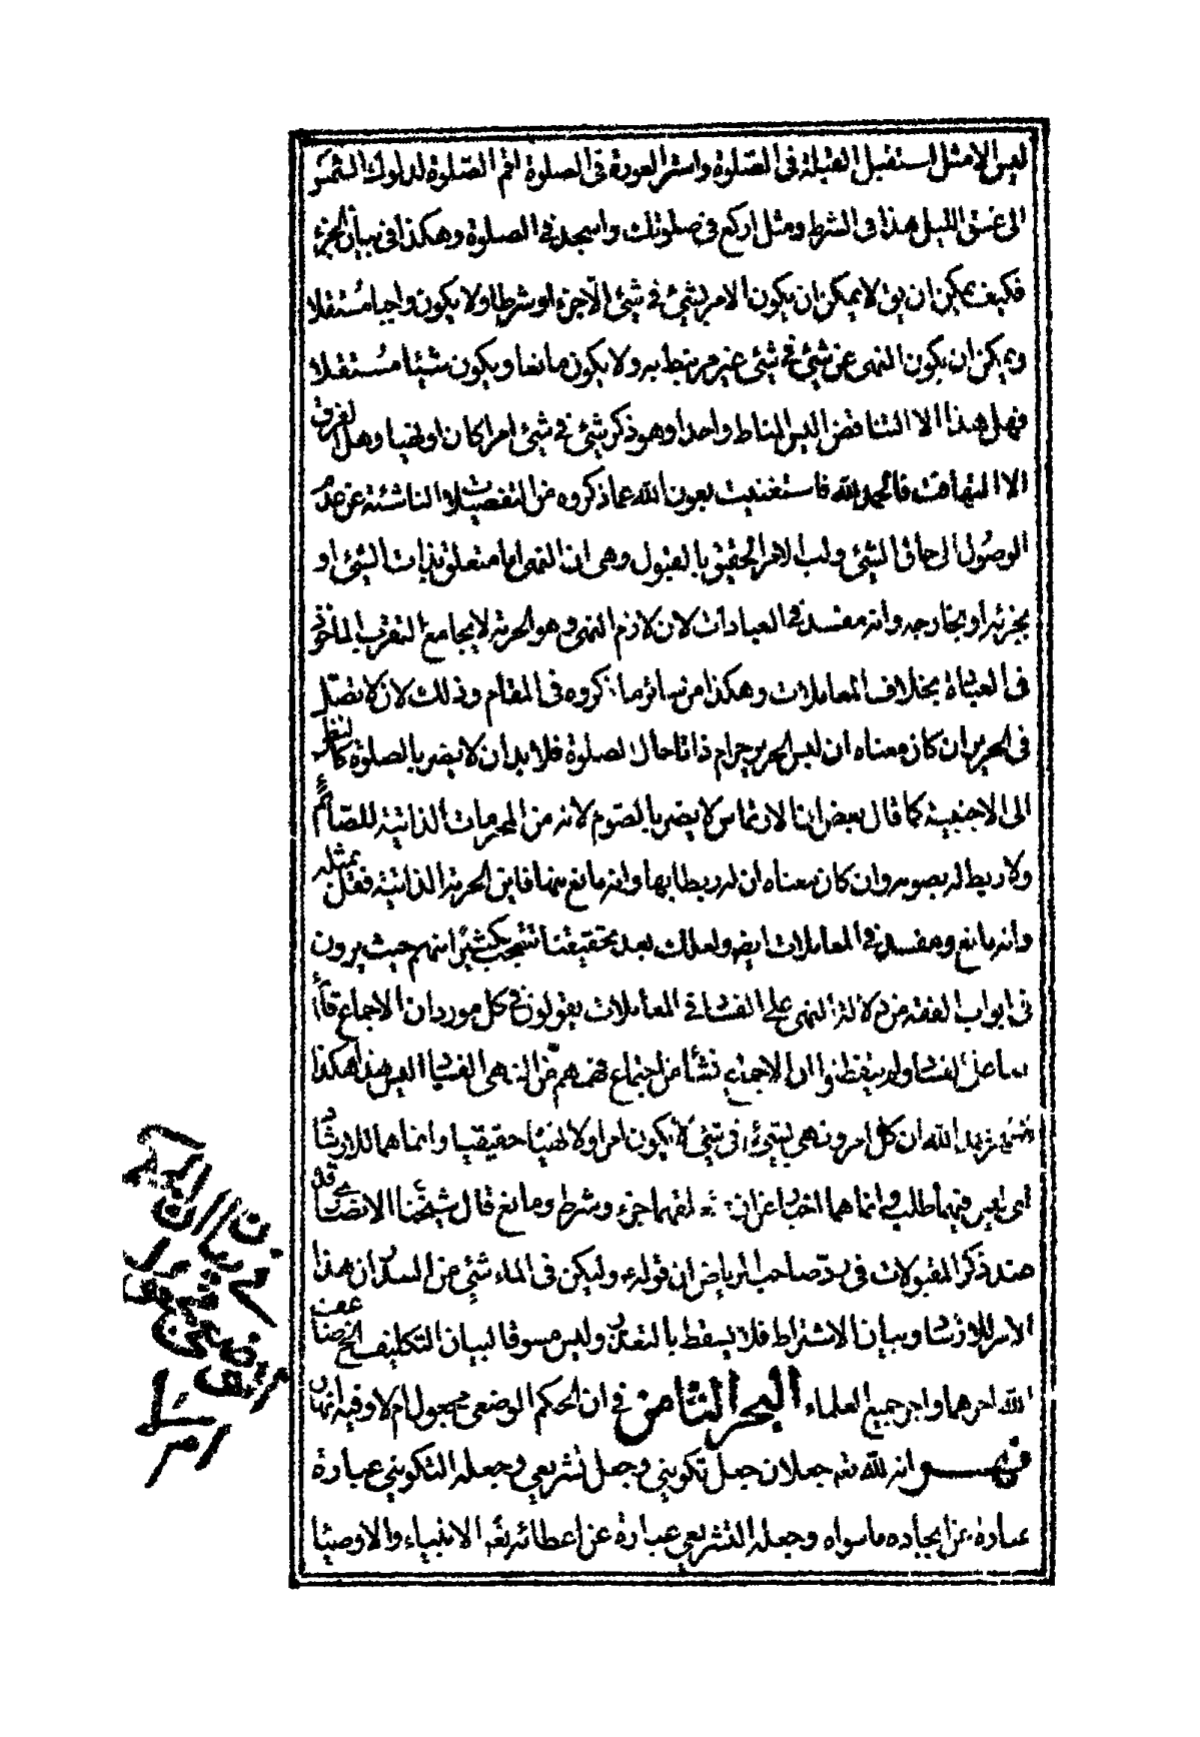 ليس الا مثل استقبل القبلة فى الصّلوة واستر العورة فى الصلوة اقم الصّلوة لدلوك الشمس
الى غسق الليل هذا فى الشرط ومثل اركع فى صلوتك واسجد فى الصلوة وهكذا فى بيان الجزء
فكيف يمكن ان يق لا يمكن ان يكون الامر بشئ فى شئ الّا جزء او شرطا ولا يكون واجبا مستقلا
ويمكن ان يكون النهى عن شئ فى شئ غير مرتبط به ولا يكون مانعا ويكون شيئا مستقلا
فهل هذا الا التناقض اليس المناط واحدا وهو ذكر شئ فى شئ امرا كان او نهيا وهل الفرق
الا التهافت فالحمد لله فاستغنيت بعون الله عما ذكروه من التفصيلات الناشئة عن عدم
الوصول الى حاق الشئ ولب الامر الحقيق بالقبول وهى ان النهى اما متعلق بذات الشئ او
بجزئه او بخارجه وانه مفسد فى العبادات لان لازم النهى وهو الحرمة لا يجامع التقرب الماخوذ
فى العبادة بخلاف المعاملات وهكذا من سائر ما ذكروه فى المقام وذلك لان لا تصل
فى الحرير ان كان معناه ان لبس الحرير حرام ذاتا حال الصلوة فلا بد ان لا يضر بالصلوة كالنظر
الى الاجنبية كما قال بعض ان الارتماس لا يضر بالصوم لانه من المحرمات الذاتية للصائم
ولا ربط له بصومه وان كان معناه ان له ربطا بها وانه مانع منها فاين الحرمة الذاتية فقل بمثله
وانه مانع ومفسد فى المعاملات ايض ولعلك بعد تحقيقنا تتعجب كثيرا منهم حيث يرون
فى ابواب الفقه من دلالة النهى على الفساد فى المعاملات يقولون فى كل مورد ان الاجماع قائم
على الفساد ولم يتفطنوا ان الاجماع نشأ من اجتماع فهمهم من النهى الفساد اليس هذا هكذا
ان كل امر ونهى بشئ فى شئ لا يكون امرا ولا نهيا حقيقيا وانما هما للارشاد
اى ليس فيهما طلب وانما هما اخبار عن ان متعلقهما جزء وشرط ومانع قال شيخنا الانصارى قده
عند ذكر المقبولات فى ردّ صاحب الرياض ان قوله وليكن فى الماء شئ من السدر ان هذا
الامر للارشاد وبيان الاشتراط فلا يسقط بالتعذر وليس مسوقا لبيان التكليف الخ ضاعف
الله اجرهما واجر جميع العلماء البحر الثامن فى ان الحكم الوضعى مجعول ام لا وفيه انهار
فنهر انه لله تعه جعلان جعل تكوينى وجعل تشريعى وجعله التكوينى عبارة
عبارة عن ايجاده ما سواه وجعله التشريعى عبارة عن اعطائه تعه الانبياء والاوصياء